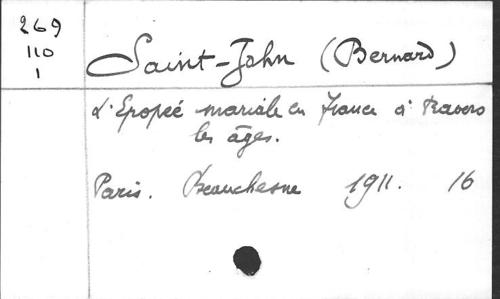 269
110
1
Saint-John (Bernard)
L'Epopée mariale en France à travers
les âges.
Paris. Beauchesne 1911. 16